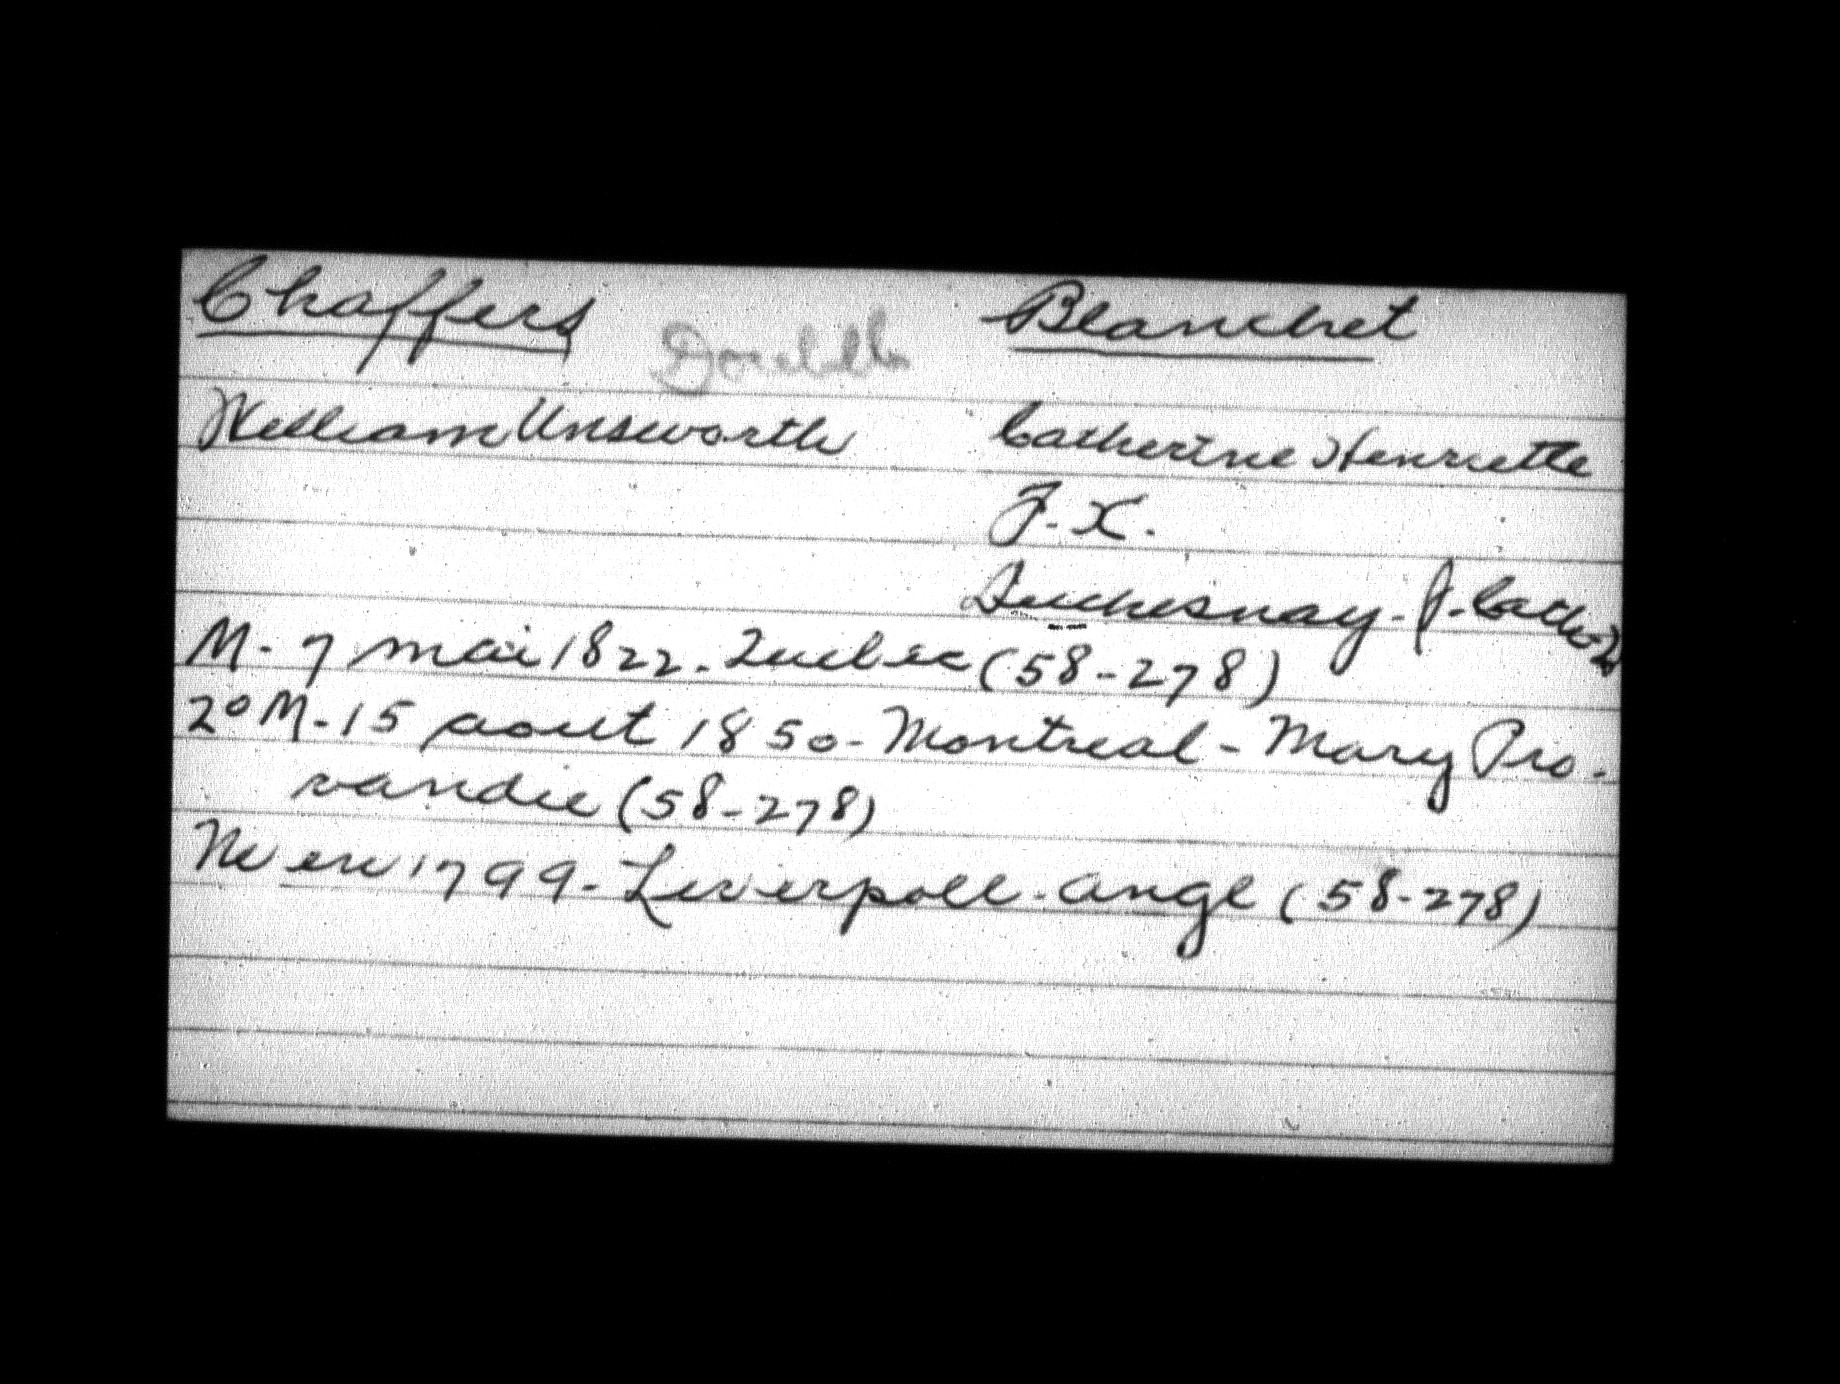 Chaffers Double Blanchet
William Unsworth Catherine Henriette
F.X.
Duchesnay - J. Cath.
M - 7 mai 1822 - Quebec (58-278)
2° M - 15 aout 1850 - Montreal - Mary Pro-
vandie (58-278)
Ne en 1799 - Liverpoll - Angl (58-278)